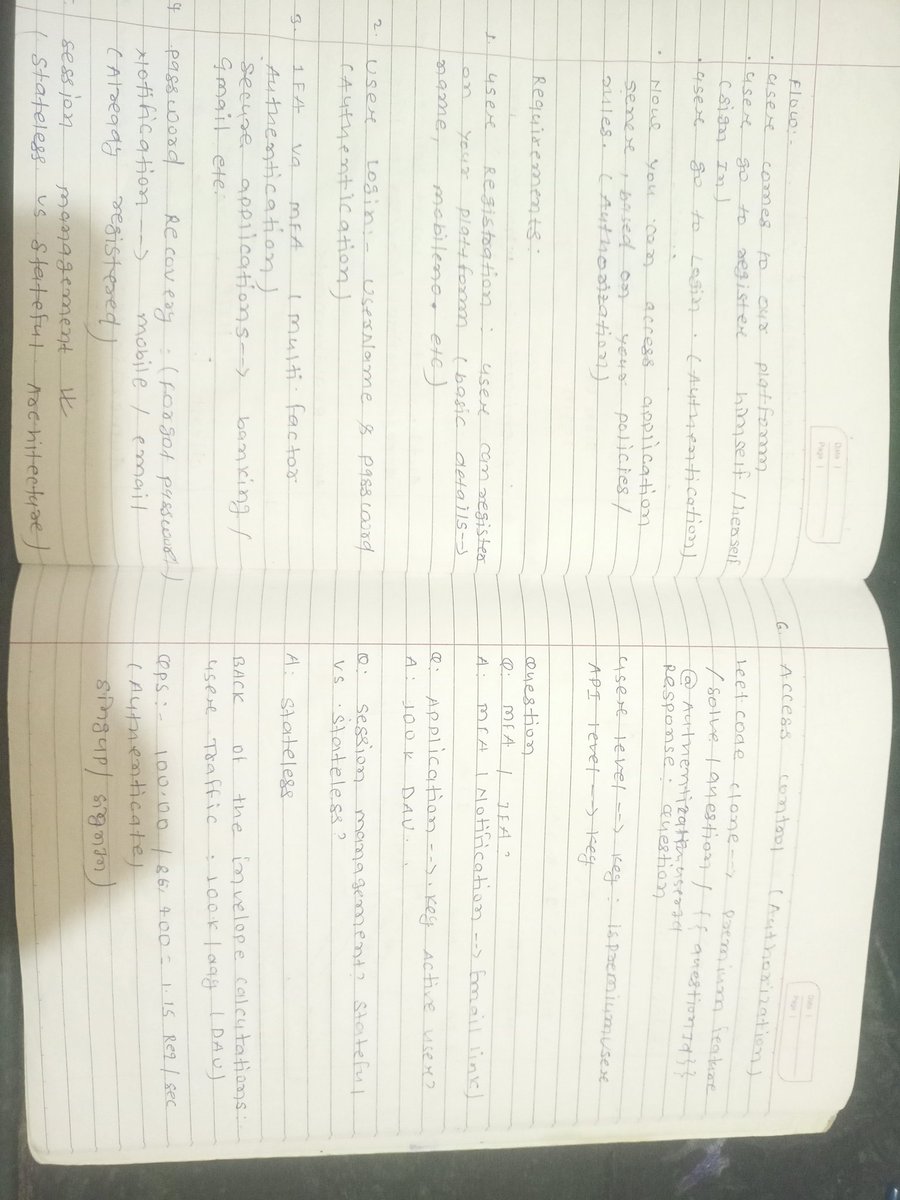 Date /
Page /
Flow:-
. User comes to our platform
. User go to register himself/herself
(sign In)
. User go to Login. (Authentication)
. Now you can access application
based on your policies/
rules. (Authorization)
Requirements:
1. User Registration: User can register
on your platform (basic details-->
name, mobileno. etc)
2. User Login:- UserName & password
(Authentication)
3. 1FA vs MFA (multi factor
Authentication)
Secure applications--> banking/
Gmail etc.
4. Password Recovery: (Forgot password)
Notification--> mobile/email
(Already registered)
session management
(Stateless vs Stateful Architecture)
Date /
Page /
6. Access control (Authorization)
leetcode clone--> premium feature
/solve/question/{{questionId}}
Response: question
User level--> key: isPremiumUser
API level--> key
Question
Q: MFA / 1FA?
A: MFA (Notification--> Email link)
Q: Application-->. key Active user?
A: 100K DAU.
Q: session management? Stateful
vs. Stateless?
A: stateless
Back of the invelope calcutations:
User Traffic: 100K/day (DAU)
QPS:- 100,00/86,400 = 1.15 Req/sec
(Authenticate)
singup/signin)